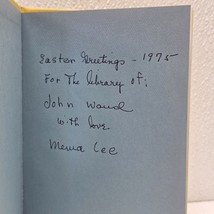 Easter Greetings - 1975
For The library of:
John Waud
with love
Mema Lee